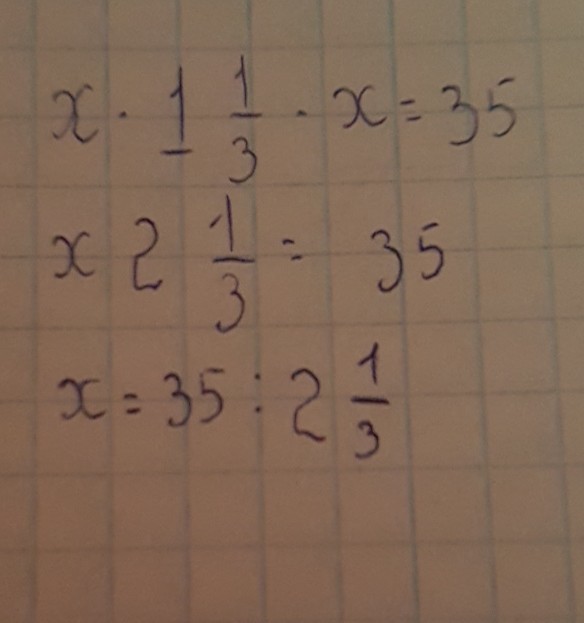 x · 1 1/3 · x = 35
x 2 1/3 = 35
x = 35 : 2 1/3